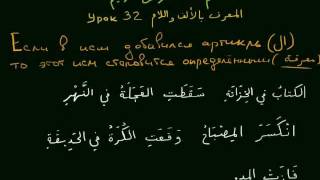 Урок 32 المعرف بالألف واللام
Если в исм добавился артикль (ال)
то этот исм становится определённым (معرفة)
الكتابُ في الخِزَانَةِ سَقَطَتِ العَجَلَةُ في النَّهْرِ
انْكَسَرَ المِصْبَاحُ وَقَعَتِ الكُرَةُ في الحَدِيقَةِ